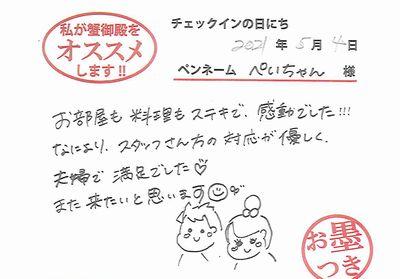 私が蟹御殿を
オススメ
します!!
チェックインの日にち
2021年5月4日
ペンネーム ぺいちゃん 様
お部屋も料理もステキで、感動でした!!!
なにより、スタッフさん方の対応が優しく、
夫婦で満足でした♡
また来たいと思います
お墨
つき